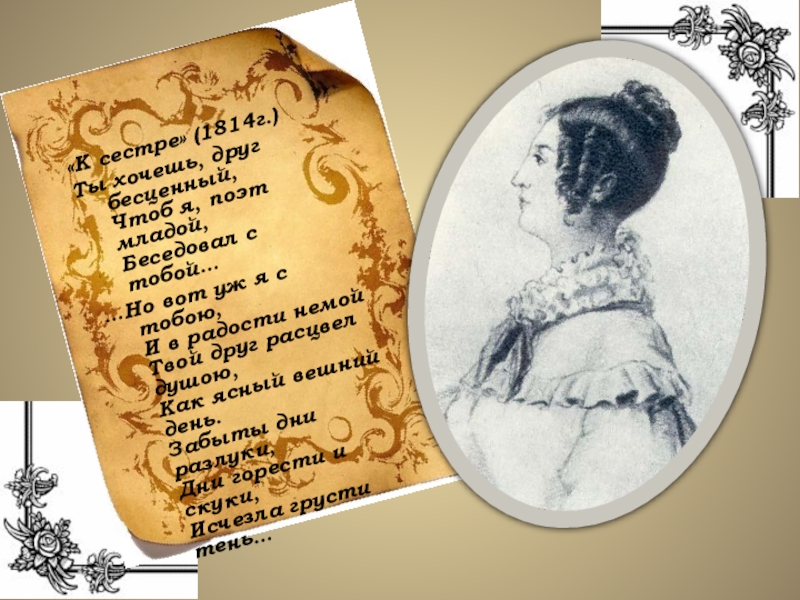 «К сестре» (1814г.)
Ты хочешь, друг
бесценный,
Чтоб я, поэт
младой,
Беседовал с
тобой...
...Но вот уж я с
тобою,
И в радости немой
Твой друг расцвел
душою,
Как ясный вешний
день.
Забыты дни
разлуки,
Дни горести и
скуки,
Исчезла грусти
тень...